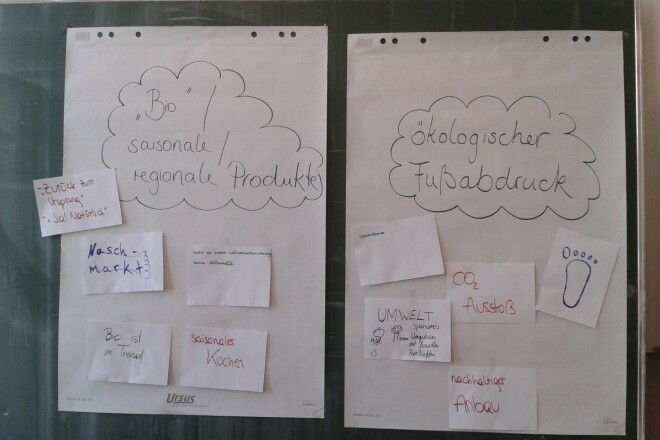 „Bio" /
saisonale /
regionale Produkte
-„Zurück zum
Ursprung"
-„Ja! Natürlich"
Nasch-
markt
Bio ist
im Trend
saisonales
Kochen
Ursus
ökologischer
Fußabdruck
CO₂
Ausstoß
UMWELT
sparsames
Umgehen
mit fossilen
nachhaltiger
Anbau